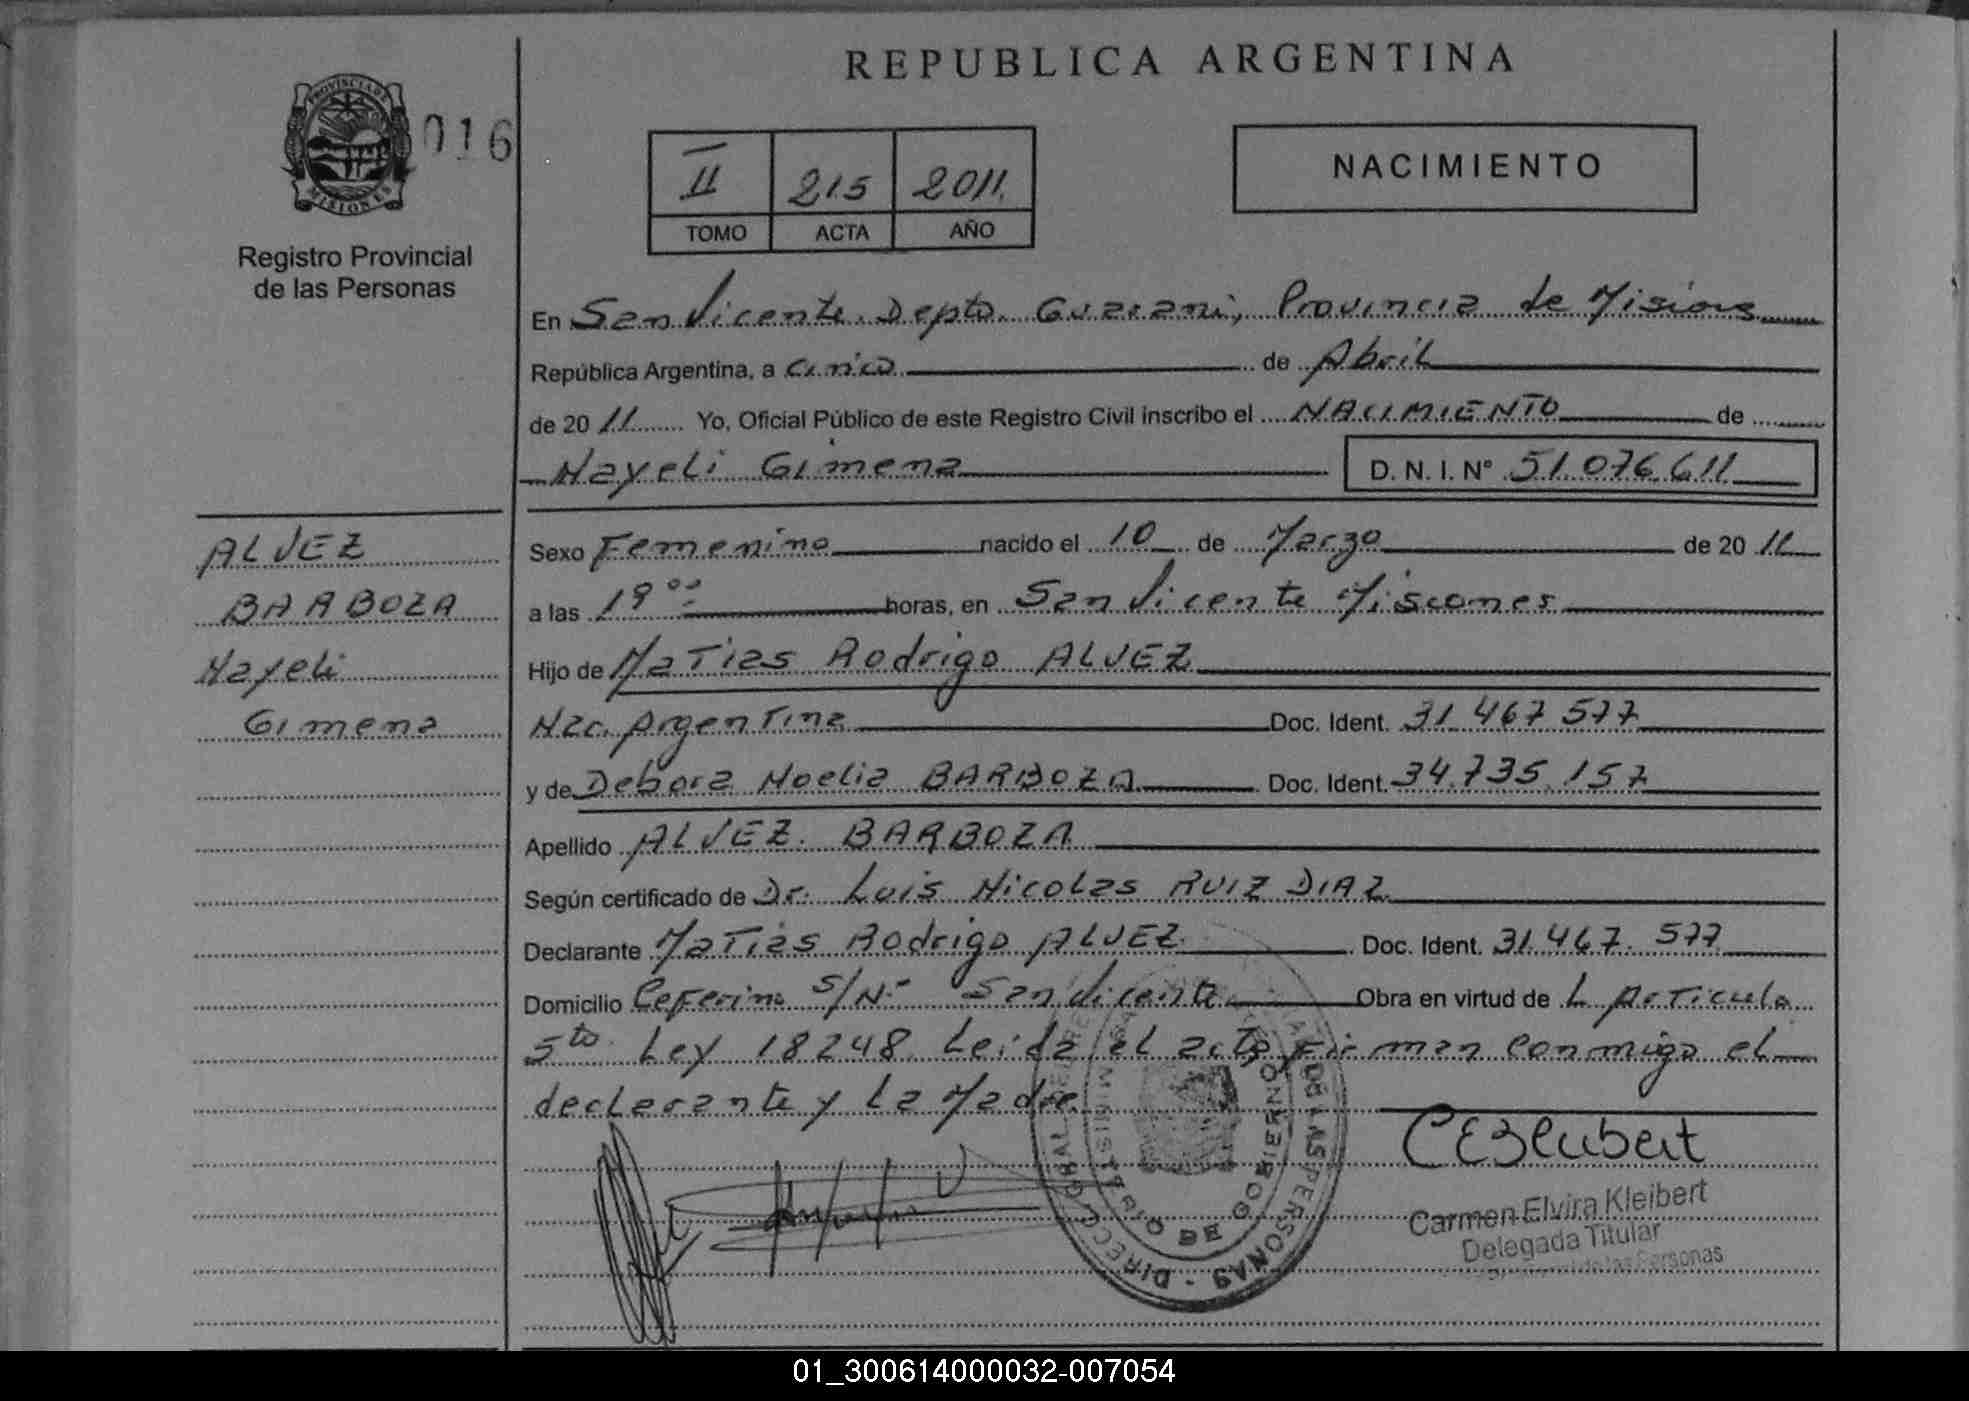 REPUBLICA ARGENTINA
PROVINCIA DE
MISIONES
016
Registro Provincial
de las Personas
II 215 2011
TOMO ACTA AÑO
NACIMIENTO
En San Vicente Depto. Guarani, Provincia de Misiones
República Argentina, a cinco de Abril
de 2011 Yo, Oficial Público de este Registro Civil inscribo el NACIMIENTO de
Nayeli Gimena D. N. I. N° 51.076.611
ALVEZ
BARBOZA
Nayeli
Gimena
Sexo Femenino nacido el 10 de Marzo de 2011
a las 19 00 horas, en San Vicente Misiones
Hijo de Matias Rodrigo ALVEZ
Nac. Argentina Doc. Ident. 31.467.577
y de Debora Noelia BARBOZA Doc. Ident. 34.735.157
Apellido ALVEZ. BARBOZA
Según certificado de Dr. Luis Nicolas RUIZ DIAZ
Declarante Matias Rodrigo ALVEZ Doc. Ident. 31.467.577
Domicilio Ceferino S/N.- San Vicente Obra en virtud de L Articulo
5to Ley 18248. Leida el acta firman conmigo el
declarante y la Madre
Carmen Elvira Kleibert
Delegada Titular
de las Personas
MINISTERIO DE GOBIERNO
01_300614000032-007054